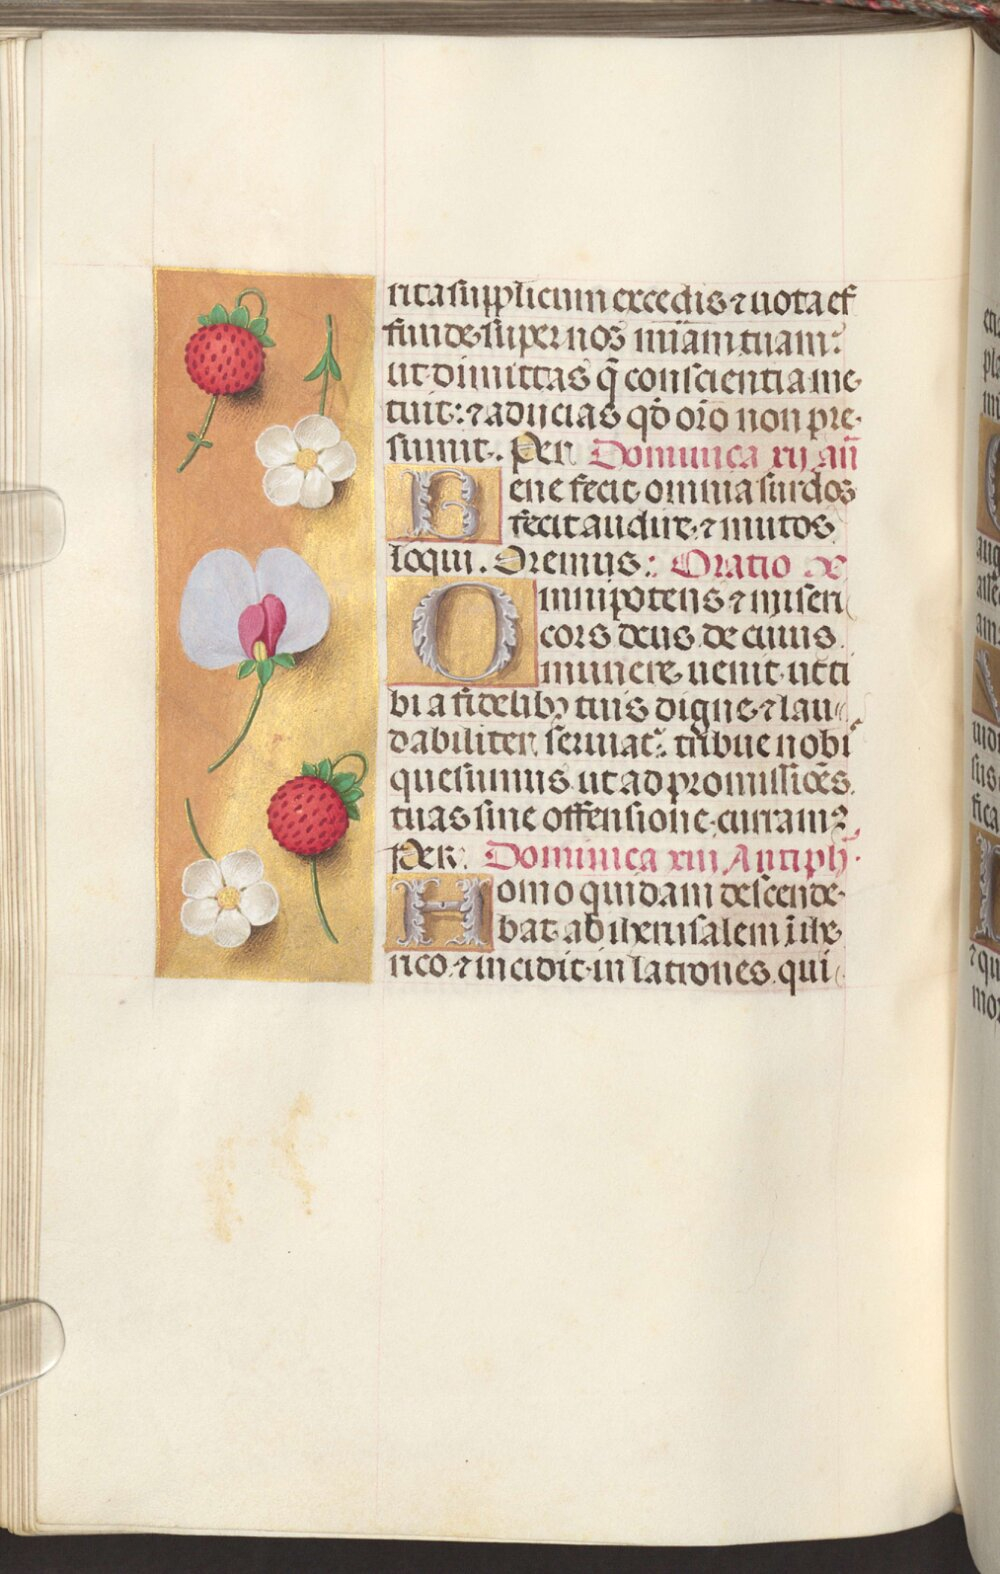 rita supplicum excedis ⁊ vota ef
funde super nos mīam tuam:
ut dimittas q̄ conscientia me
tuit: ⁊ adiicias qđ orō non pre
sumit. Per. Dominica xij añ
Bene fecit omnia surdos
fecit audire, ⁊ mutos
loqui. Oremus: Oratio de
Omnipotens ⁊ miseri
cors deus de cuius
munere venit ut ti
bi a fidelibꝫ tuis digne ⁊ lau
dabiliter seruiat᷑: tribue nobi
quesumus ut ad promissiōes
tuas sine offensione curramꝰ
Per. Dominica xiii Antiph.
Homo quidam descende
bat ab iherusalem ī ihe
rico ⁊ incidit in latrones qui